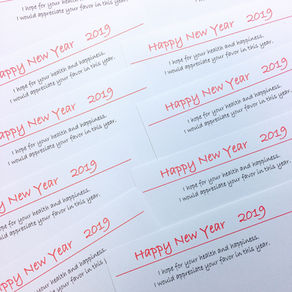 I hope for your health and happiness.
I would appreciate your favor in this year.
Happy New Year 2019
I hope for your health and happiness.
I would appreciate your favor in this year.
Happy New Year 2019
I hope for your health and happiness.
I would appreciate your favor in this year.
Happy New Year 2019
I hope for your health and happiness.
I would appreciate your favor in this year.
Happy New Year 2019
I hope for your health and happiness.
I would appreciate your favor in this
I would appreciate your favor in this year.
Happy New Year 2019
I hope for your health and happiness.
I would appreciate your favor in this year.
Happy New Year 2019
I hope for your health and happiness.
I would appreciate your favor in this year.
Happy New Year 2019
I hope for your health and happiness.
I would appreciate your favor in this year.
Happy New Year 2019
I hope for your health and happiness.
I would appreciate your favor in this year.